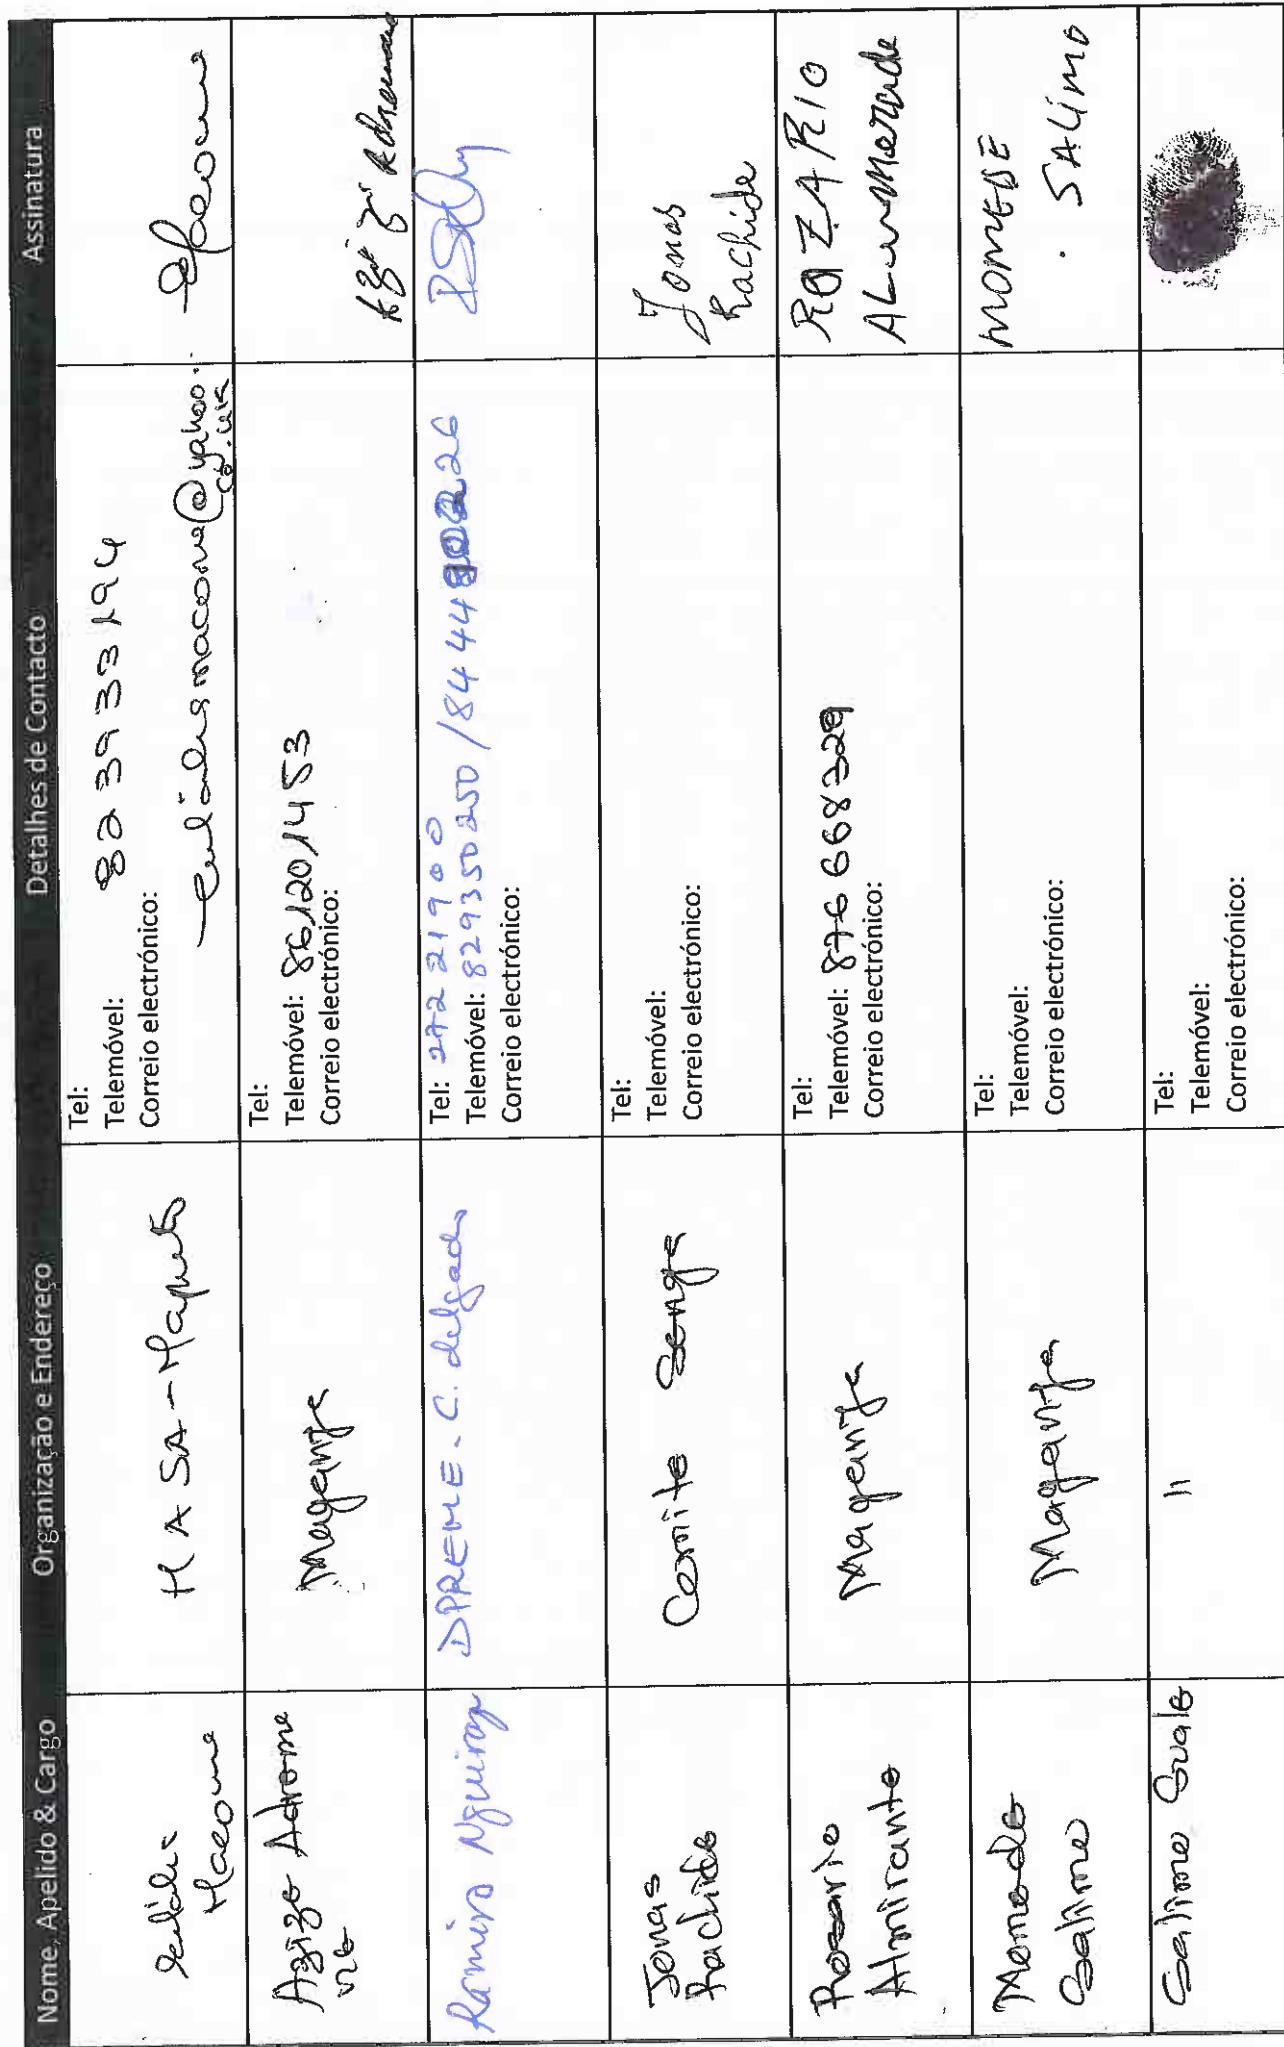 Nome, Apelido & Cargo Organização e Endereço Detalhes de Contacto Assinatura
Macome
MASA-Maputo
Tel:
Telemóvel: 823933194
Correio electrónico:
macome@yahoo.
co.uk
Azizo Adrema
ne
Maganja
Tel:
Telemóvel: 861201453
Correio electrónico:
Ramiro Nguiraz
DPREME-C. delgado
Tel: 27221900
Telemóvel: 829350250 /8444
Correio electrónico:
Jonas
Rachide
Comite Senga
Tel:
Telemóvel:
Correio electrónico:
Jonas
Rachide
Rosario
Almirante
Maganja
Tel:
Telemóvel: 876668329
Correio electrónico:
ROZARIO
Momade
Salimo
Maganja
Tel:
Telemóvel:
Correio electrónico:
MOMEDE
. SALIMO
Salimo Suale
11
Tel:
Telemóvel:
Correio electrónico: